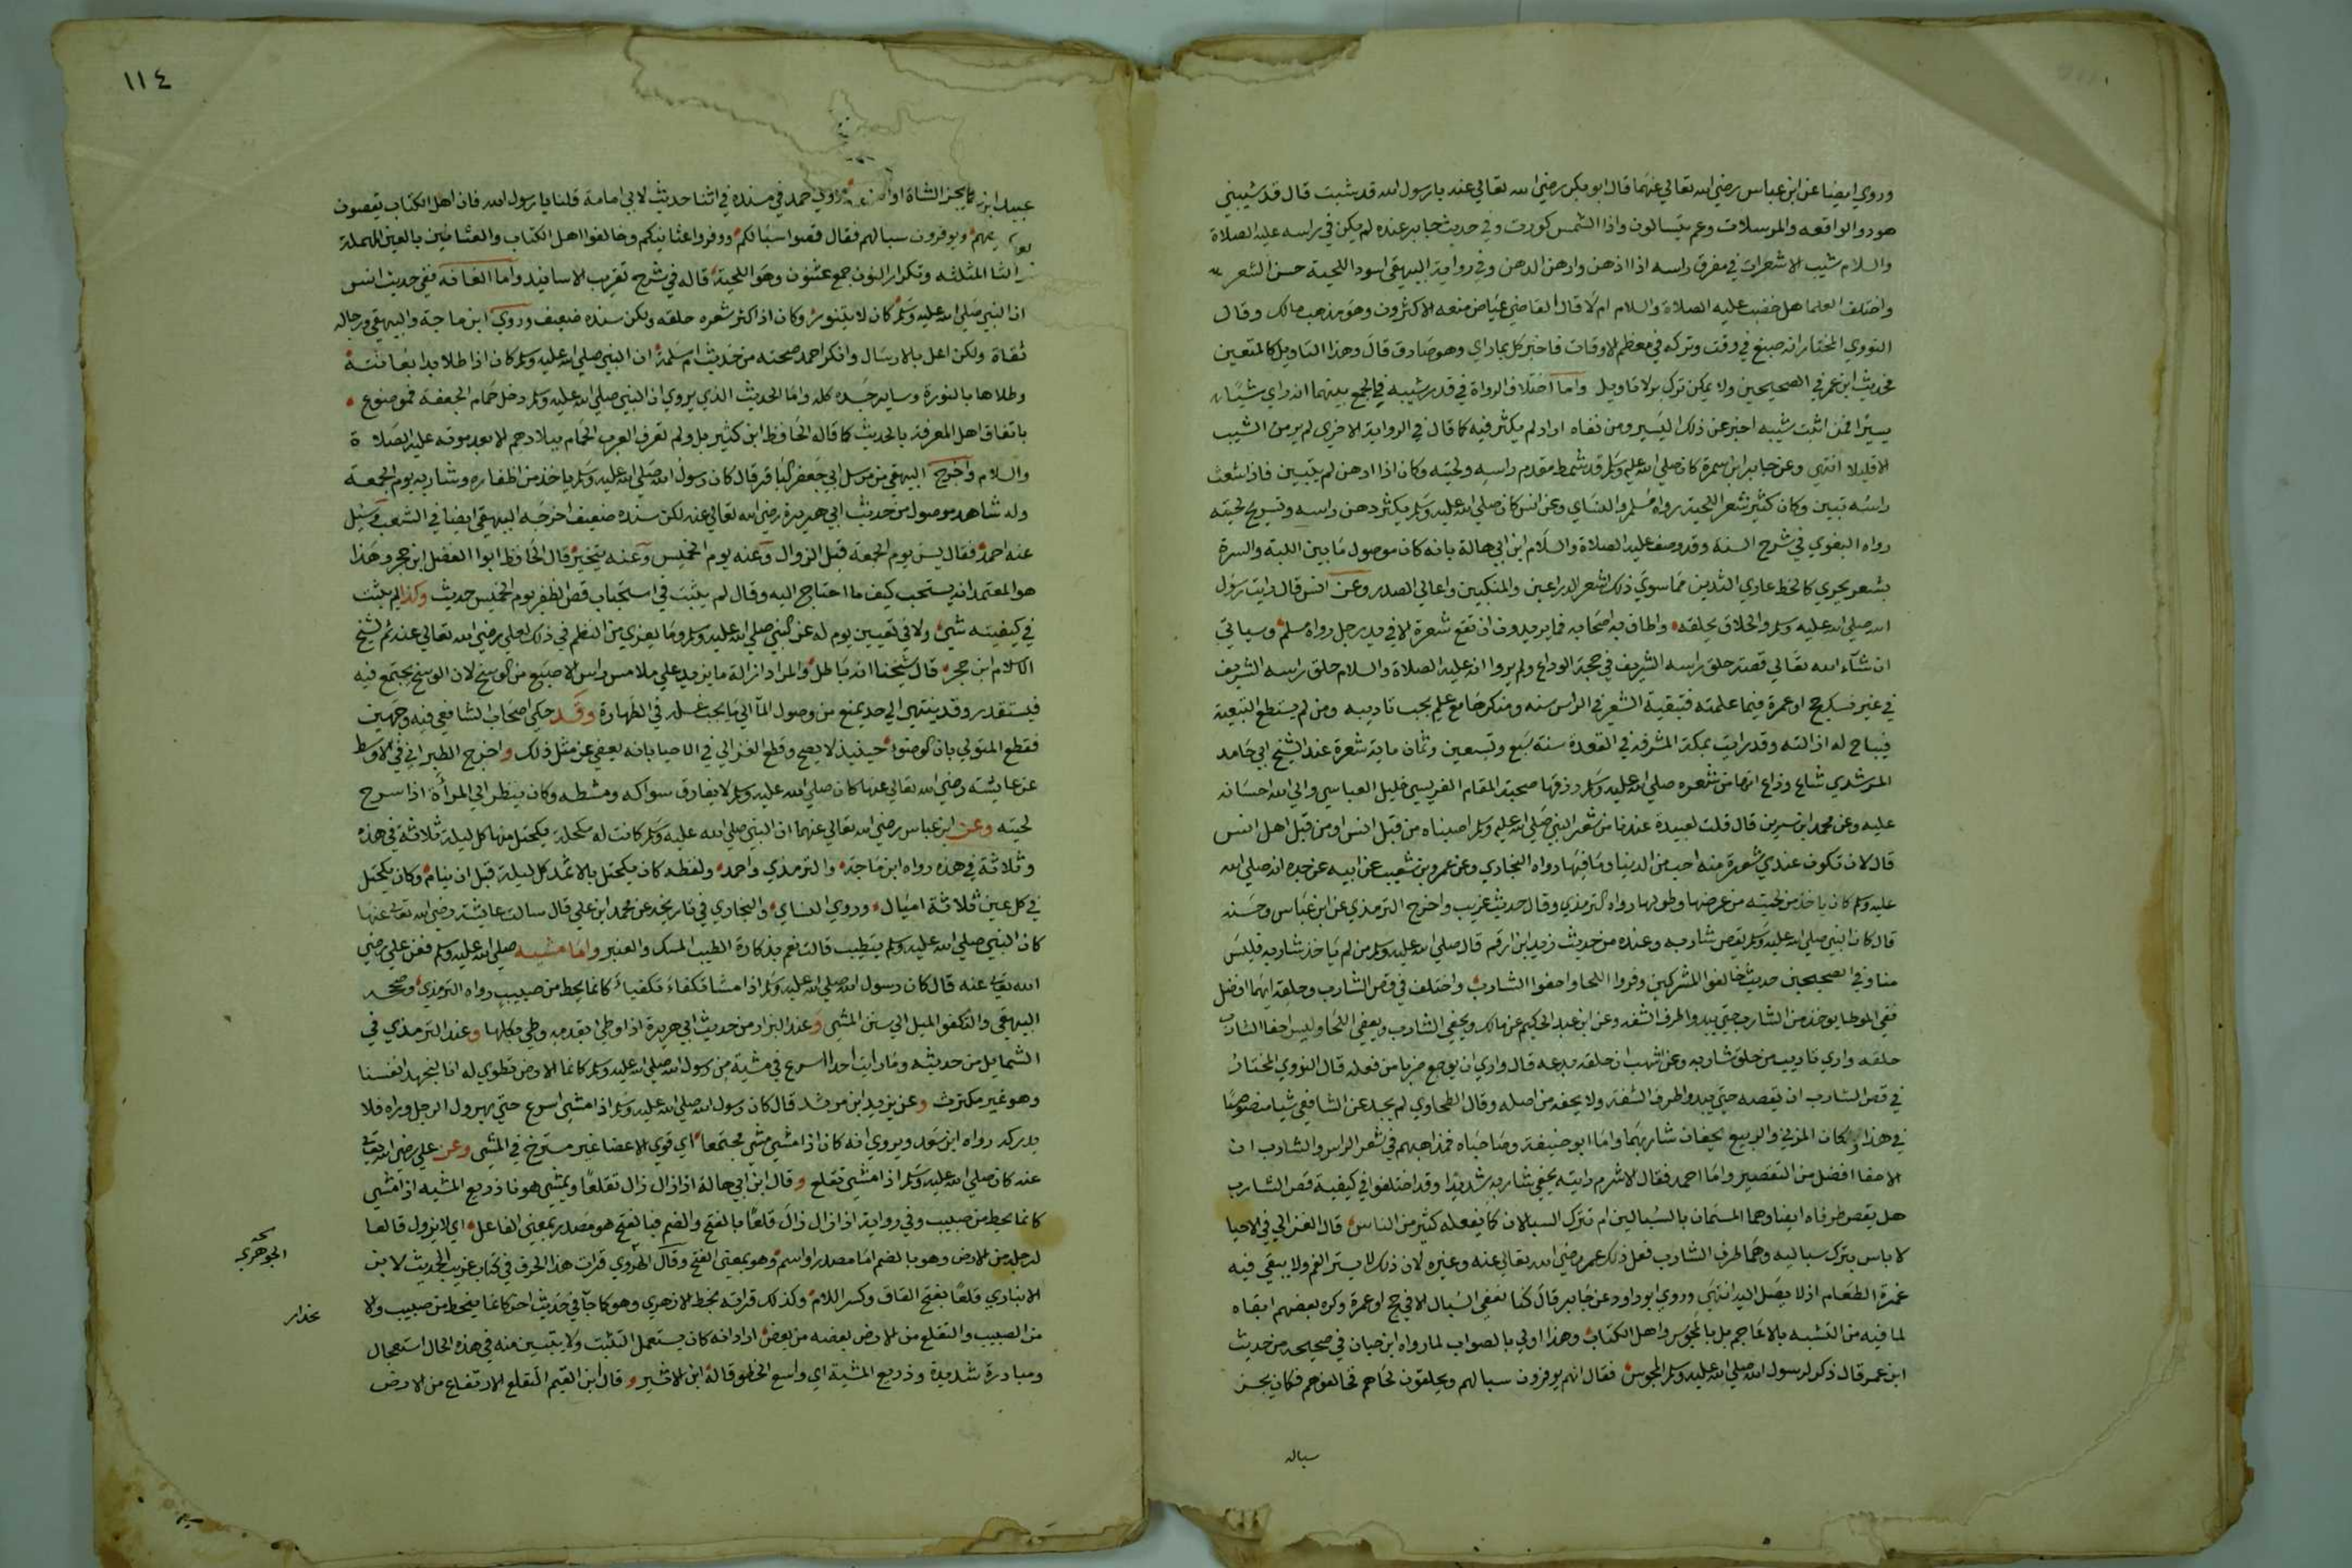 وروي ايضا عن ابن عباس رضي الله تعالي عنهما قال ابو بكر رضي الله تعالي عنه يارسول الله قد شبت قال قد شيبني
هود والواقعه والمرسلات وعم يتسالون واذا الشمس كورت وفي حديث جابر عنده لم يكن في راسه عليه الصلاة
والسلام شيب الا شعرات في مفرق راسه اذا ادهن واراهن الدهن وفي رواية البيهقي اسود اللحية حسن الشعر
واختلف العلما هل خضب عليه الصلاة والسلام ام لا قال القاضي عياض منعه الاكثرون وهو مذهب مالك وقال
النووي المختار انه صبغ في وقت وتركه في معظم الاوقات فاخبر كل بما راي وهو صادق قال وهذا التاويل كالمتعين
فحديث ابن عمر في الصحيحين ولا يمكن تركه ولا تاويل واما اختلاف الرواة في قدر شيبه فالجمع بينهما انه راي شيئا
يسيرا فمن اثبت شيبه اخبر عن ذلك اليسير ومن نفاه اراد لم يكثر فيه كما قال في الرواية الاخري لم ير من الشيب
الا قليلا انتهي وعن جابر ابن سمرة كان صلي الله عليه وسلم قد شمط مقدم راسه ولحيته وكان اذا ادهن لم يتبين فاذا شعث
راسه تبين وكان كثير شعر اللحية رواه مسلم والنساي وعن انس كان صلي الله عليه وسلم يكثر دهن راسه وتسريح لحيته
رواه البغوي في شرح السنة وقد وصف عليه الصلاة والسلام ابن ابي هالة بانه كان موصول ما بين اللبة والسرة
بشعر يجري كالخط عاري الثديين مما سوي ذلك اشعر الذراعين والمنكبين واعالي الصدر وعن انس قال رايت رسول
الله صلي الله عليه وسلم والحلاق يحلقه واطاف به اصحابه فما يريدون ان تقع شعرة الا في يد رجل رواه مسلم وسياتي
ان شاء الله تعالي قصة حلق راسه الشريف في حجة الوداع ولم يروا انه عليه الصلاة والسلام حلق راسه الشريف
في غير نسك حج او عمرة فيما علمته فتبقية الشعر في الراس سنه ومنكرها مع علمه يجب تاديبه ومن لم يستطع التبقية
فيباح له ازالته وقد رايت بمكة المشرفة في القعدة سنة سبع وتسعين وثمان ماية شعرة عند الشيخ ابي حامد
المرشدي شاع وذاع انها من شعره صلي الله عليه وسلم زرتها صحبة المقام الغرسي خليل العباسي والي الله احسانه
عليه وعن محمد ابن سيرين قال قلت لعبيدة عندنا من شعر النبي صلي الله عليه وسلم اصبناه من قبل انس او من قبل اهل انس
قال لان تكون عندي شعرة منه احب من الدنيا وما فيها رواه البخاري وعن عمرو بن شعيب عن ابيه عن جده انه صلي الله
عليه وسلم كان ياخذ من لحيته من عرضها وطولها رواه الترمذي وقال حديث غريب واخرج الترمذي عن ابن عباس وحسنه
قال كان النبي صلي الله عليه وسلم يقص شاربه وعنده من حديث زيد ابن ارقم قال صلي الله عليه وسلم من لم ياخذ شاربه فليس
منا وفي الصحيحين حديث خالفوا المشركين وفروا اللحا واحفوا الشارب واختلف في قص الشارب وحلقه ايهما افضل
ففي الموطا يوخذ من الشارب حتي يبدو اطراف الشفه وعن ابن عبد الحكيم عن مالك ويحفي الشارب ويعفي اللحا وليس احفا الشارب
حلقه واري تاديب من حلق شاربه وعن اشهب ان حلقه بدعه قال واري ان يوجع ضربا من فعله قال النووي المختار
في قص الشارب ان يقصه حتي يبدو اطراف الشفة ولا يحفه من اصله وقال الطحاوي لم يجد عن الشافعي شيا منصوصا
في هذا وكان المزني والربيع يحفان شاربهما واما ابو حنيفة وصاحباه فمذاهبهم في شعر الراس والشارب ان
الاحفا افضل من التقصير واما احمد فقال الاثرم رايته يحفي شاربه شديدا وقد اختلفوا في كيفية قص الشارب
هل يقص طرفاه ايضا وهما المسميان بالسبالين ام تترك السبالان كما يفعله كثير من الناس قال الغزالي في الاحيا
لا باس بترك سباليه وهما طرف الشارب فعل ذلك عمر رضي الله تعالي عنه وغيره لان ذلك لا يستر الفم ولا يبقي فيه
غمرة الطعام اذ لا يصل اليه انتهي وروي ابو داود عن جابر قال كنا نعفي السبال الا في حج او عمرة وكره بعضهم ابقاه
لما فيه من التشبه بالاعاجم بل بالمجوس واهل الكتاب وهذا اولي بالصواب لما رواه ابن حبان في صحيحه من حديث
ابن عمر قال ذكر لرسول الله صلي الله عليه وسلم المجوس فقال انهم يوفرون سبالهم ويحلقون لحاهم فخالفوهم فكان يجز
سباله
١١٤
كما يجز الشاة او وروي احمد في مسنده في اثنا حديث لابي امامة قلنا يا رسول الله فان اهل الكتاب يقصون
ويوفرون سبالهم فقال قصوا سبالكم ووفروا عثانينكم وخالفوا اهل الكتاب والعثانين بالعين المهملة
والثا المثلثه وتكرار النون جمع عثنون وهو اللحية قاله في شرح تقريب الاسانيد واما العانه ففي حديث انس
ان النبي صلي الله عليه وسلم كان لا يتنور وكان اذا كثر شعره حلقه ولكن سنده ضعيف وروي ابن ماجة والبيهقي ورجاله
ثقاة ولكن اعل بالارسال وانكر احمد صحته من حديث ام سلمة ان النبي صلي الله عليه وسلم كان اذا طلا بدا بعانته
وطلاها بالنورة وساير جسده كله واما الحديث الذي يروي ان النبي صلي الله عليه وسلم دخل حمام الجحفة فموضوع
باتفاق اهل المعرفة بالحديث كما قاله الحافظ ابن كثير بل ولم تعرف العرب الحمام ببلادهم الا بعد موته عليه الصلاة
والسلام واخرج البيهقي من مرسل ابي جعفر الباقر قال كان رسول الله صلي الله عليه وسلم ياخذ من اظفاره وشاربه يوم الجمعة
وله شاهد موصول من حديث ابي هريرة رضي الله تعالي عنه لكن سنده ضعيف اخرجه البيهقي ايضا في الشعب وسئل
عنه احمد فقال يسن يوم الجمعة قبل الزوال وعنه يوم الخميس وعنه يتخير قال الحافظ ابوا الفضل ابن حجر وهذا
هو المعتمد انه يستحب كيف ما احتاج اليه وقال لم يثبت في استحباب قص الظفر يوم الخميس حديث وكذا لم يثبت
في كيفيته شي ولا في تعيين يوم له عن النبي صلي الله عليه وسلم وما يعزي من النظم في ذلك لعلي رضي الله تعالي عنه ثم لشيخ
الاسلام ابن حجر قال شيخنا انه باطل والمراد ازالة ما يزيد علي ملامس راس الاصبع من الوسخ لان الوسخ يجتمع فيه
فيستقذر وقد ينتهي الي حد يمنع من وصول الما الي ما يجب غسله في الطهارة وقد حكي اصحاب الشافعي فيه وجهين
فقطع المتولي بان الوضوء حينيذ لا يصح وقطع الغزالي في الاحيا بانه يعفي عن مثل ذلك واخرج الطبراني في الاوسط
عن عايشة رضي الله تعالي عنها كان صلي الله عليه وسلم لا يفارق سواكه ومشطه وكان ينظر الي المرأة اذا سرح
لحيته وعن ابن عباس رضي الله تعالي عنهما ان النبي صلي الله عليه وسلم كانت له مكحلة يكتحل منها كل ليلة ثلاثة في هذه
وثلاثة في هذه رواه ابن ماجة والترمذي واحمد ولفظه كان يكتحل بالاثمد كل ليلة قبل ان ينام وكان يكتحل
في كل عين ثلاثة اميال وروي النساي والبخاري في تاريخه عن محمد ابن علي قال سالت عايشة رضي الله تعالي عنها
كان النبي صلي الله عليه وسلم يتطيب قالت نعم بذكارة الطيب المسك والعنبر واما مشيه صلي الله عليه وسلم فعن علي رضي
الله تعالي عنه قال كان رسول الله صلي الله عليه وسلم اذا مشا تكفا تكفيا كانما يحط من صبيب رواه الترمذي وصححه
البيهقي والتكفو الميل الي سنن المشي وعند البزار من حديث ابي هريرة اذا وطي بقدمه وطي بكلها وعند الترمذي في
الشمايل من حديثه وما رايت احدا اسرع في مشية من رسول الله صلي الله عليه وسلم كانما الارض تطوي له انا لنجهد انفسنا
وهو غير مكترث وعن يزيد ابن مرثد قال كان رسول الله صلي الله عليه وسلم اذا مشي اسرع حتي يهرول الرجل وراه فلا
يدركه رواه ابن سعد ويروي انه كان اذا مشي مشي مجتمعا اي قوي الاعضا غير مسترخ في المشي وعن علي رضي الله تعالي
عنه كان صلي الله عليه وسلم اذا مشي تقلع وقال ابن ابي هالة اذا زال زال تقلعا ويمشي هونا ذريع المشيه اذا مشي
كانما يحط من صبيب وفي رواية اذا زال زال قلعا بالفتح والضم فبالفتح هو مصدر بمعني الفاعل اي لا يزول قالعا
لرجله من الارض وهو بالضم اما مصدر او اسم وهو بمعني الفتح وقال الهروي قرات هذا الحرف في كتاب غريب الحديث لابن
الانباري قلعا بفتح القاف وكسر اللام وكذلك قراته بخط الازهري وهو كما جا في حديث اخر كانما ينحط من صبيب ولا
من الصبيب والتقلع من الارض بعضه من بعض اراد انه كان يستعمل التثبت ولا يتبين منه في هذه الحال استعجال
ومبادرة شديدة وذريع المشية اي واسع الخطو قاله ابن الاثير وقال ابن القيم التقلع الارتفاع من الارض
الجوهري